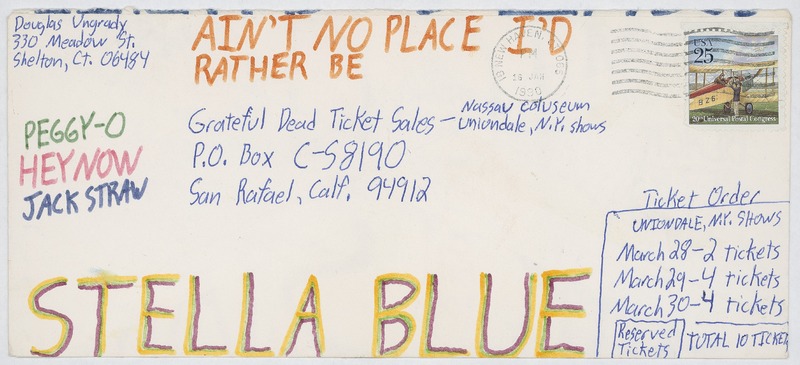 Douglas Ungrady
330 Meadow St.
Shelton, Ct. 06484
AIN'T NO PLACE I'D
RATHER BE
NEW HAVEN,
PM
1990
USA
25
B 26
20th Universal Postal Congress
PEGGY-O
HEY NOW
JACK STRAW
Grateful Dead Ticket Sales — Nassau Coluseum
Uniondale, N.Y. shows
P.O. Box C-S8190
San Rafael, Calf. 94912
Ticket Order
UNIONDALE, N.Y. SHOWS
March 28-2 tickets
March 29-4 tickets
March 30-4 tickets
Reserved
Tickets
TOTAL 10 TICKETS
STELLA BLUE